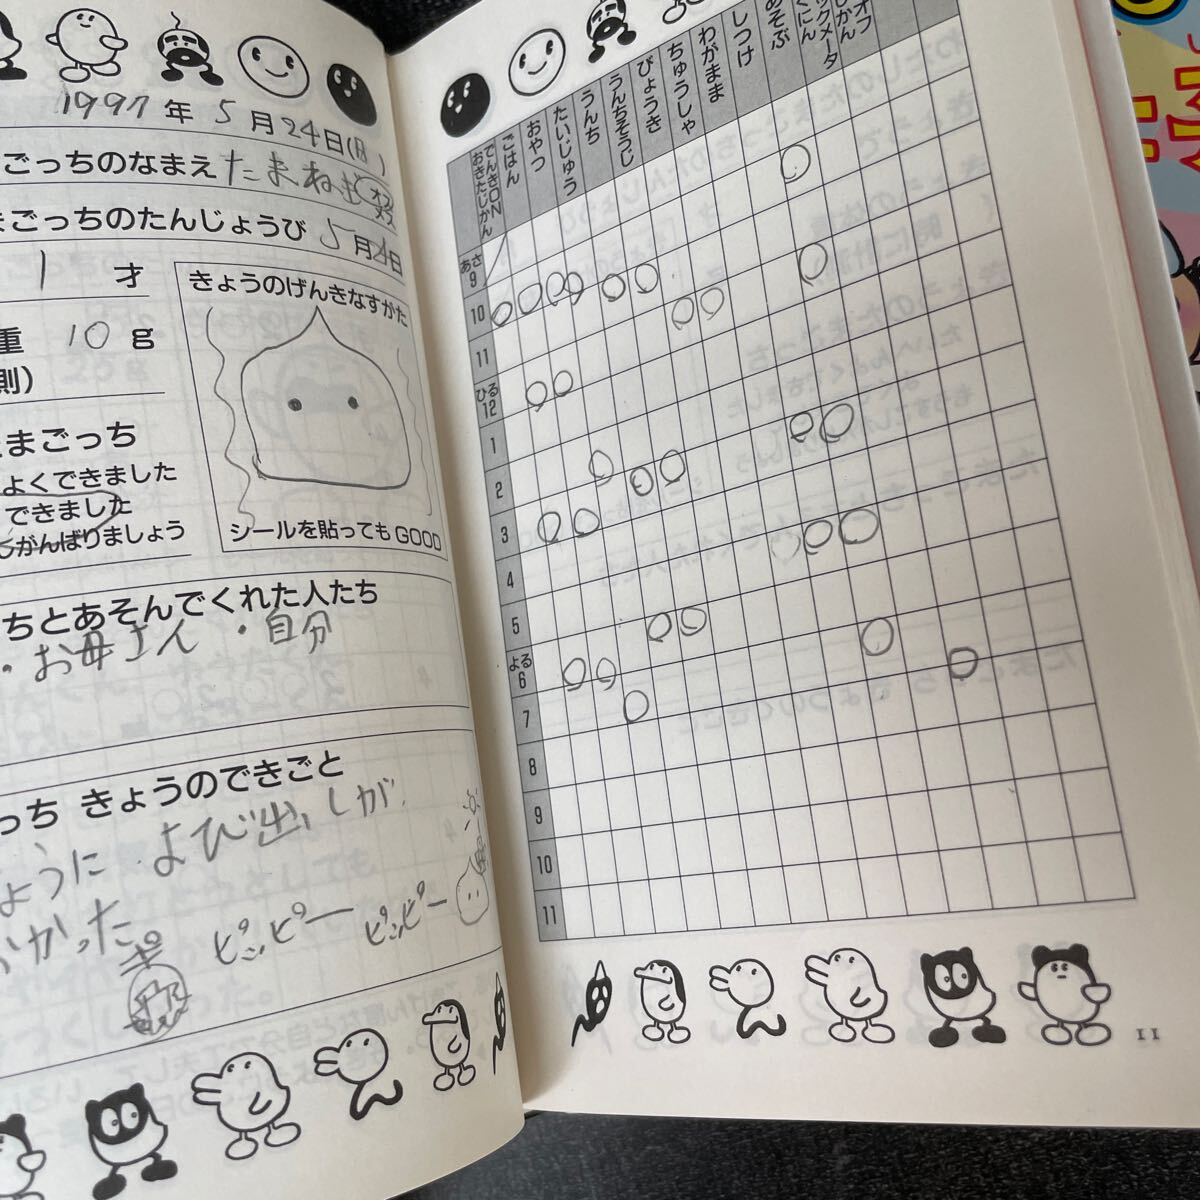 1997年 5月24日(日)
ごっちのなまえ たまねぎ
まごっちのたんじょうび 5月24日
1 才
きょうのげんきなすがた
重 10 g
則)
まごっち
よくできました
できました
がんばりましょう
シールを貼ってもGOOD
ちとあそんでくれた人たち
・お母さん・自分
っち きょうのできごと
ように よび出しが
かった。
ピッピー ピッピー
でんきON
おきたじかん
ごはん
おやつ
たいじゅう
うんち
うんちそうじ
びょうき
ちゅうしゃ
わがまま
しつけ
あそぶ
ックメータ
くにん
オフ
じかん
あさ
9
10
11
ひる
12
1
2
3
4
5
よる
6
7
8
9
10
11
11